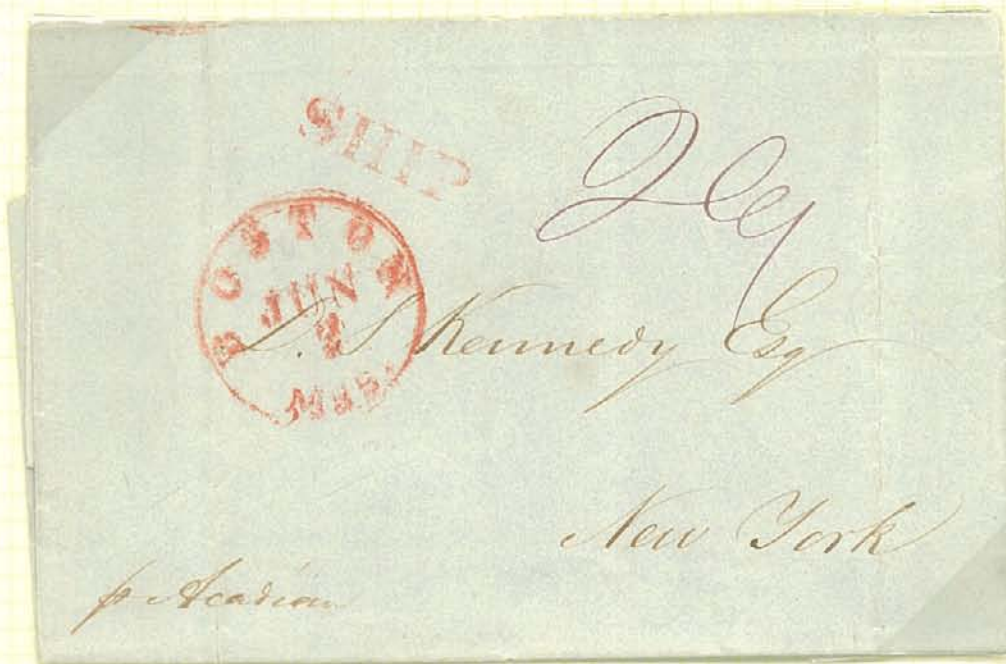 SHIP
BOSTON
JUN
MAS.
D. S. Kennedy Esq
New York
p Acadian